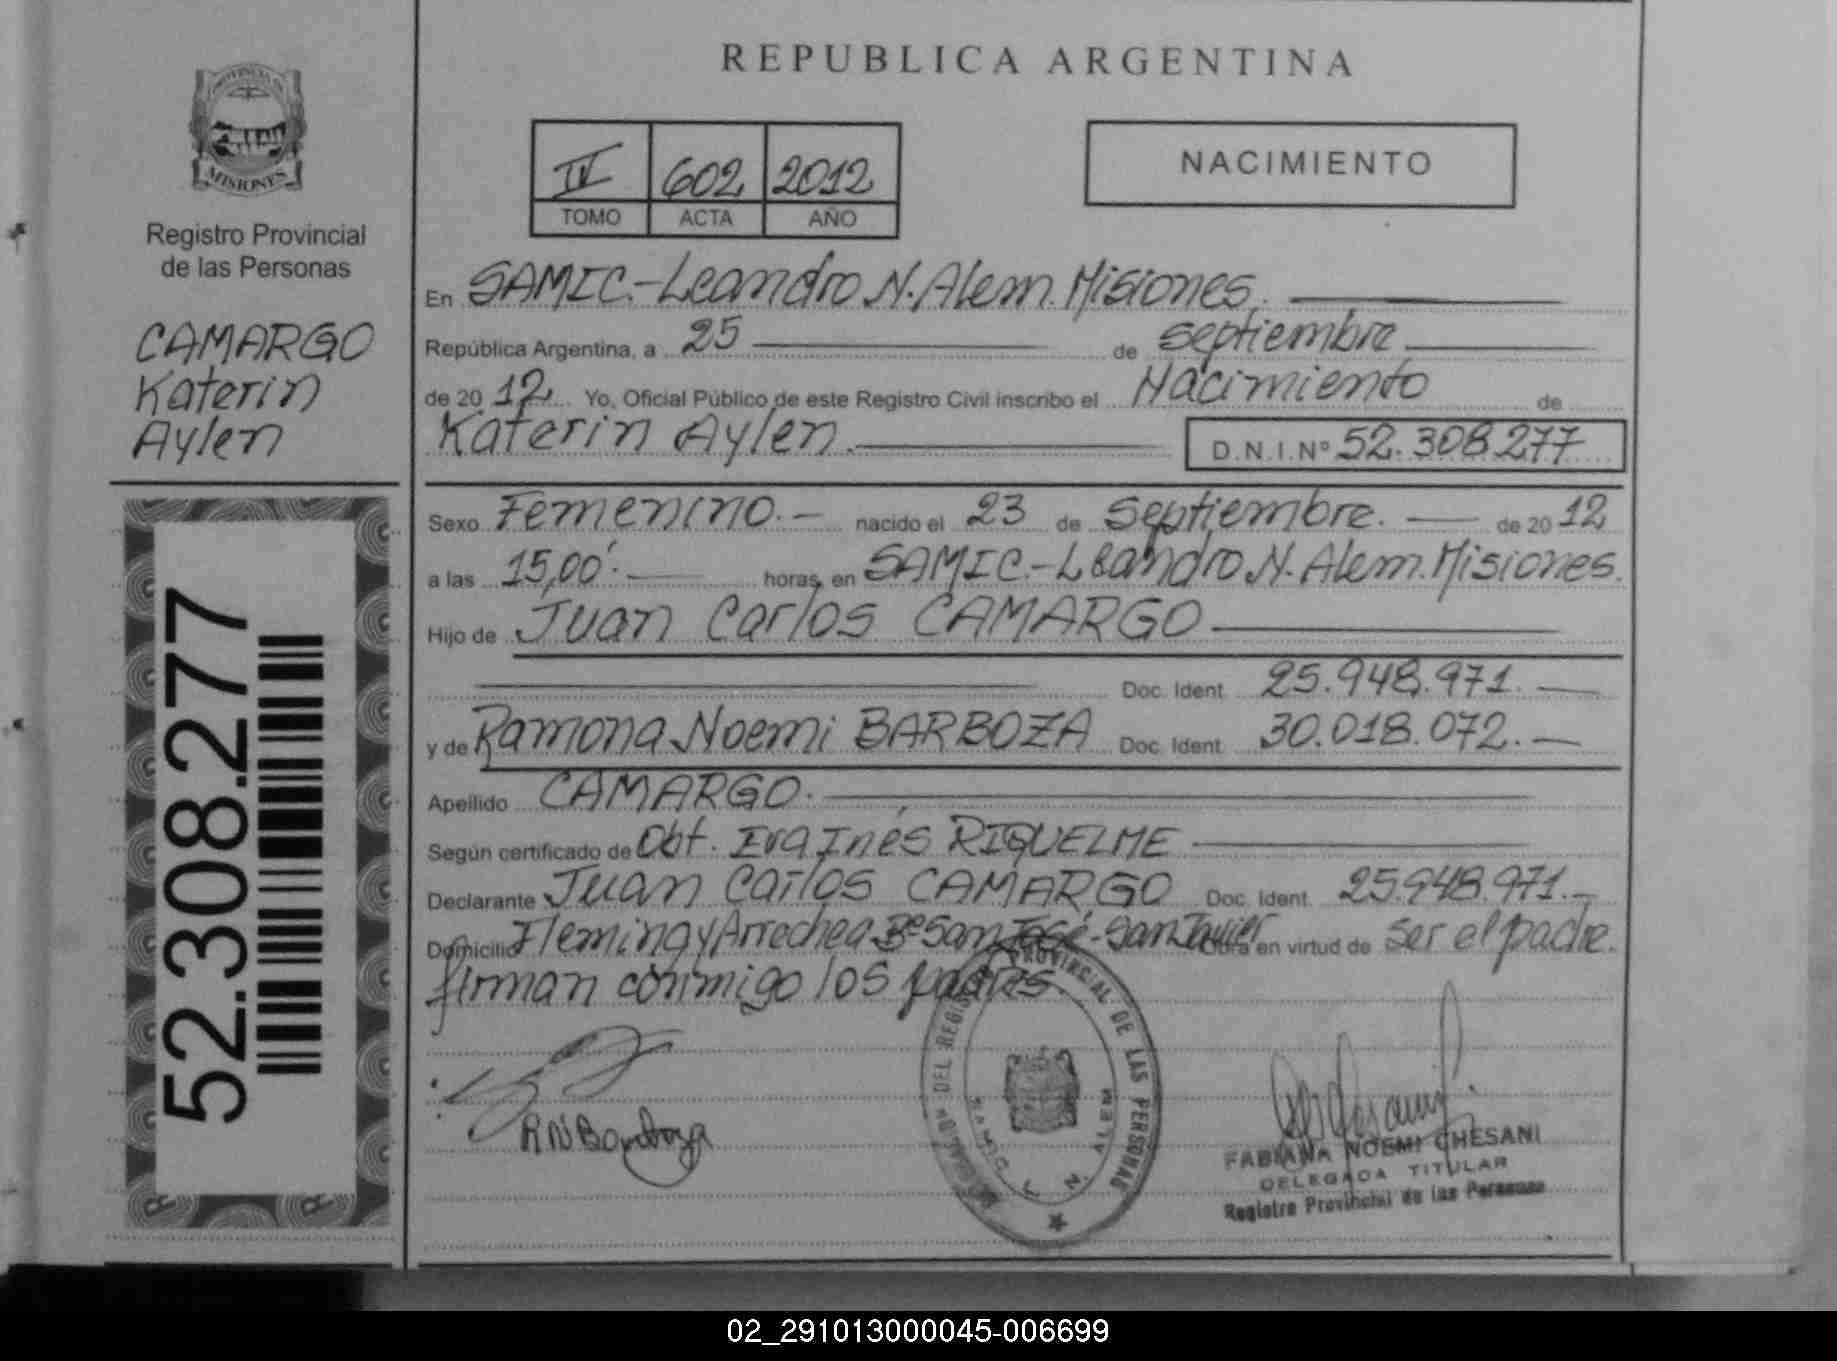 REPUBLICA ARGENTINA
PROVINCIA DE
MISIONES
Registro Provincial
de las Personas
CAMARGO
Katerin
Aylen
52.308.277
IV 602 2012
TOMO ACTA AÑO
NACIMIENTO
En SAMIC.-Leandro N. Alem. Misiones.
República Argentina, a 25 de septiembre
de 20 12 Yo, Oficial Público de este Registro Civil inscribo el Nacimiento de
Katerin Aylen. D.N.I.Nº 52.308.277
Sexo Femenino.- nacido el 23 de septiembre. de 20 12
a las 15,00'. horas, en SAMIC.-Leandro N. Alem. Misiones.
Hijo de Juan Carlos CAMARGO
Doc. Ident. 25.948.971.
y de Ramona Noemi BARBOZA Doc. Ident. 30.018.072.
Apellido CAMARGO.
Según certificado de Obt. Eva Inés RIQUELME
Declarante Juan Carlos CAMARGO Doc. Ident. 25.948.971.-
Domicilio Fleming y Arrechea Bº San José-San Javier Obra en virtud de ser el padre.
firman conmigo los padres
RN Barboza
PROVINCIAL DE LAS PERSONAS
DELEGACION DEL REGISTRO
L. N. ALEM
FABIANA NOEMI CHESANI
DELEGADA TITULAR
Registro Provincial de las Personas
02_291013000045-006699